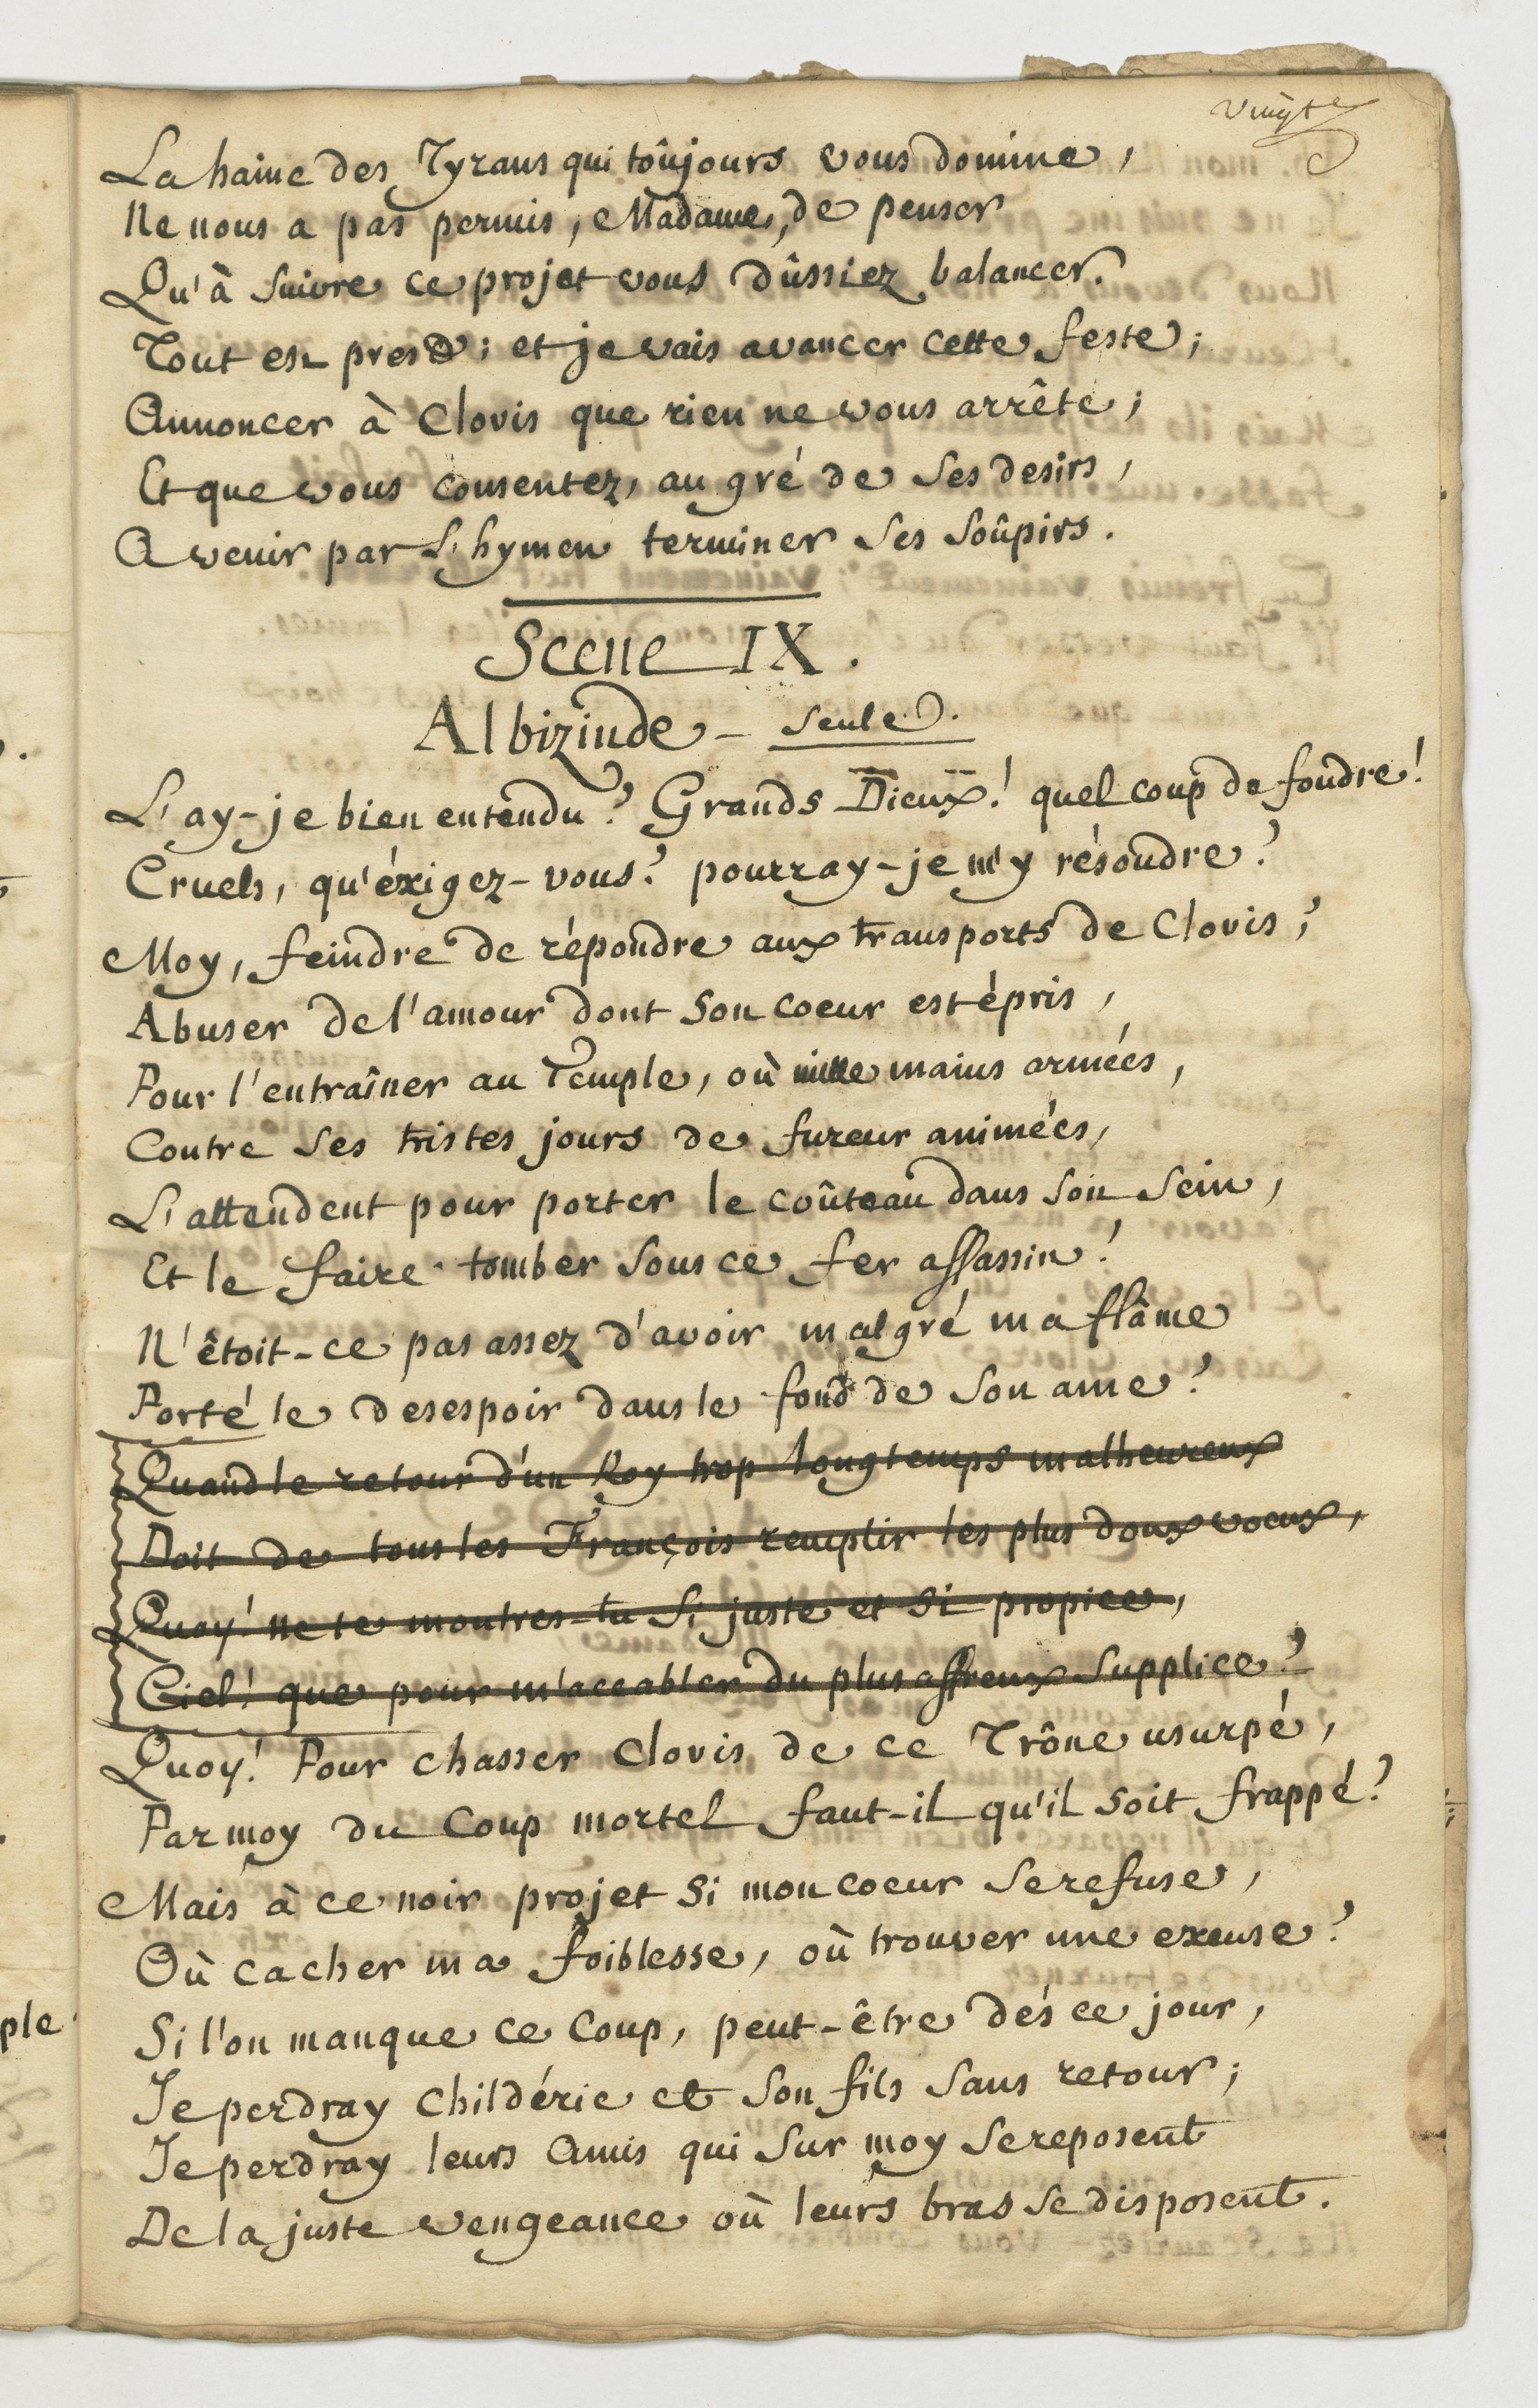 vingt
La haine des Tyrans qui toûjours vous domine,
Ne nous a pas permis, Madame, de penser
Qu'à suivre ce projet vous dûssiez balancer.
Tout est prest; et je vais avancer cette feste;
Annoncer à Clovis que rien ne vous arrête;
Et que vous consentez, au gré de ses desirs,
A venir par L'hymen terminer ses soûpirs.
Scene IX.
Albizinde - seule.
L'ay-je bien entendu? Grands Dieux! quel coup de foudre!
Cruels, qu'éxigez-vous? pourray-je m'y résoudre?
Moy, feindre de répondre aux transports de Clovis;
Abuser de l'amour dont son coeur est épris,
Pour l'entraîner au Temple, où mille mains armées,
Contre ses tristes jours de fureur animées,
L'attendent pour porter le coûteau dans son sein,
Et le faire tomber sous ce fer assassin!
N'êtoit-ce pas assez d'avoir malgré ma flâme
Porté le desespoir dans le fond de son ame?
Quand le retour d'un Roy trop longtemps malheureux
Doit de tous les François remplir les plus doux voeux,
Quoy! ne te montres-tu si juste et si propice,
Ciel! que pour m'accabler du plus affreux supplice?
Quoy! Pour chasser Clovis de ce Trône usurpé,
Par moy du Coup mortel faut-il qu'il soit frappé?
Mais à ce noir projet si mon coeur se refuse,
Où cacher ma foiblesse, où trouver une excuse?
Si l'on manque ce Coup, peut-être dés ce jour,
Je perdray Childéric et son fils sans retour;
Je perdray leurs Amis qui sur moy se reposent
De la juste vengeance où leurs bras se disposent.
ple